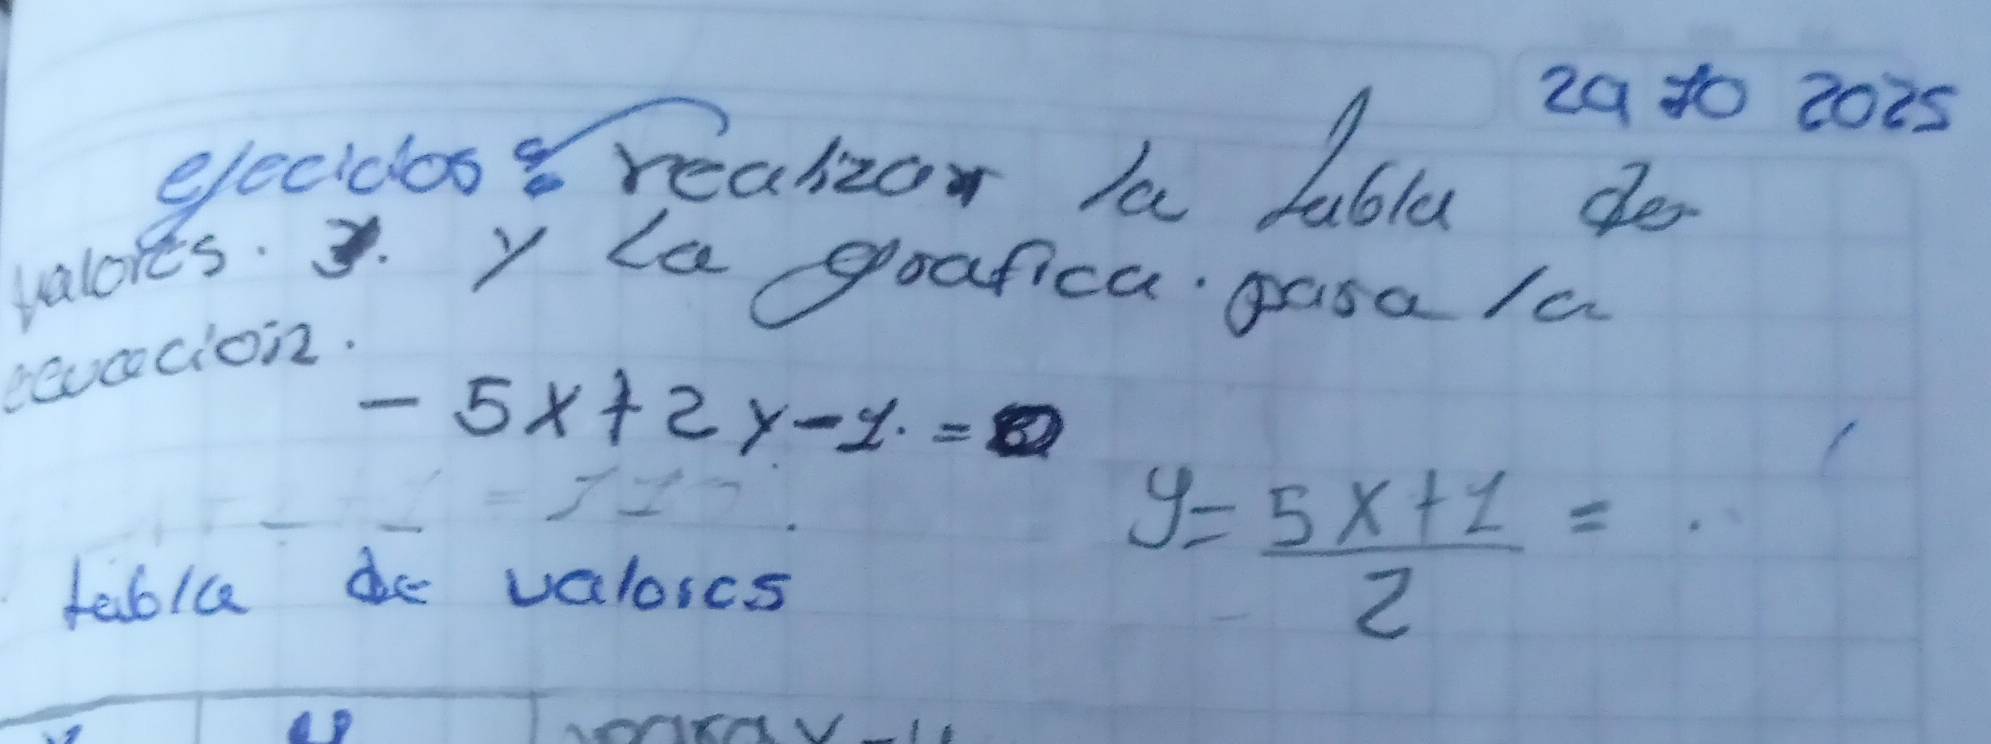 29 10 2025
ejecicios: realizar la tabla de
valores. y. y La grafica. para la
ecuacion.
- 5x+2y-1. = 0
y = 5x+1 / 2 = .
tabla de valores
x y para x = 4